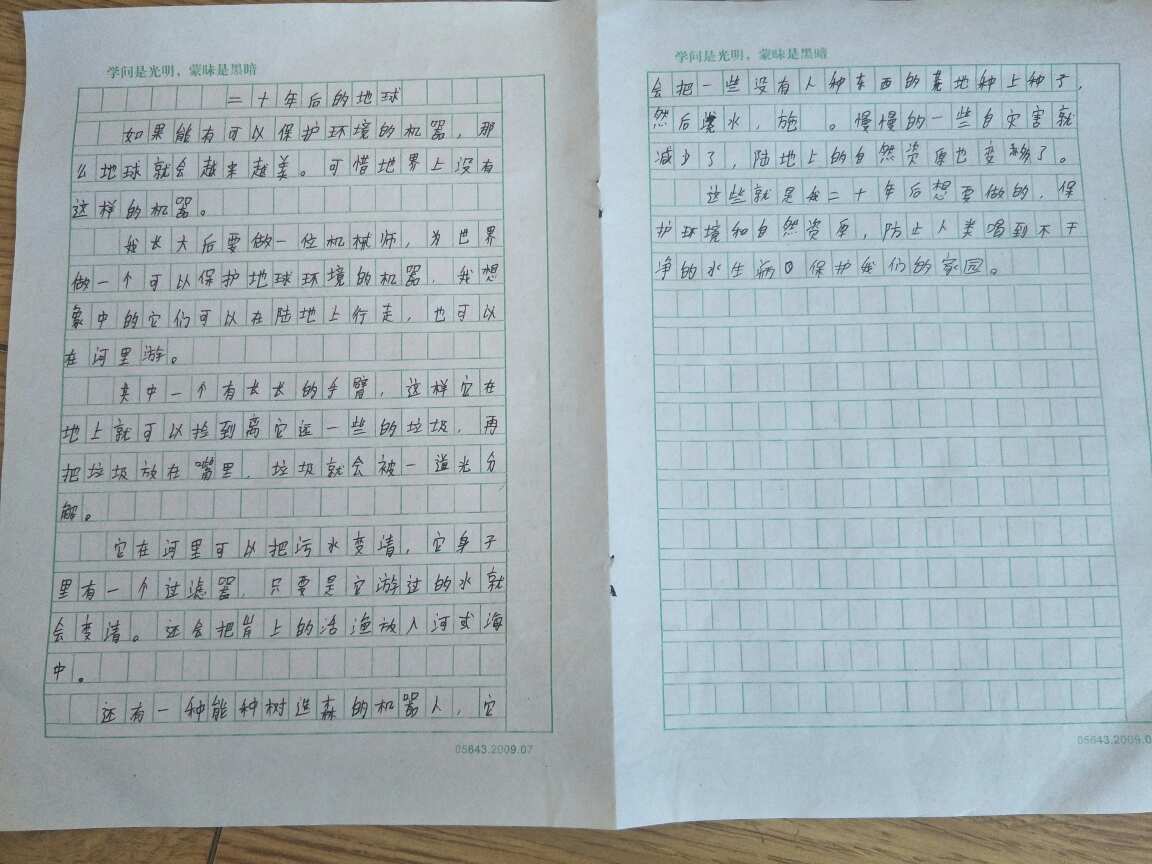 学问是光明，蒙昧是黑暗
二十年后的地球
如果能有可以保护环境的机器，那
么地球就会越来越美。可惜地界上没有
这样的机器。
我长大后要做一位机械师，为世界
做一个可以保护地球环境的机器，我想
象中的它们可以在陆地上行走，也可以
在河里游。
其中一个有长长的手臂，这样它在
地上就可以捡到离它远一些的垃圾，再
把垃圾放在嘴里，垃圾就会被一道光分
解。
它在河里可以把污水变清，它身子
里有一个过滤器，只要是它游过的水就
会变清。还会把岸上的活渔放入河或海
中。
还有一种能种树造森的机器人，它
05643.2009.07
学问是光明，蒙昧是黑暗
会把一些没有人种东西的地种上种子，
然后水，施。慢慢的一些自灾害就
减少了，陆地上的自然资原也变多了。
这些就是我二十年后想要做的，保
护环境和自然资原，防止人类喝到不干
净的水生病。保护我们的家园。
05643.2009.0